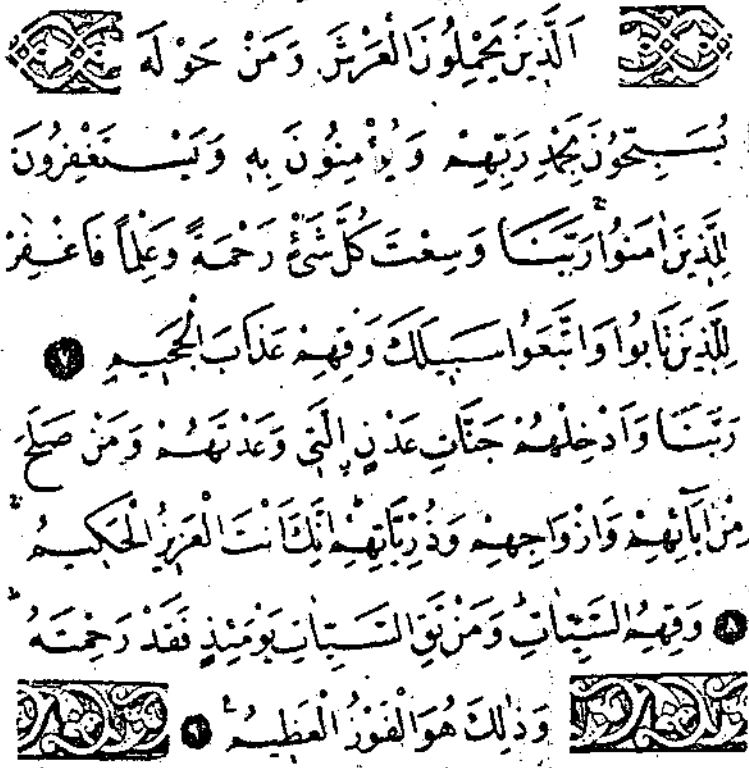 اَلَّذِينَ يَحْمِلُونَ الْعَرْشَ وَمَنْ حَوْلَهُ
يُسَبِّحُونَ بِحَمْدِ رَبِّهِمْ وَيُؤْمِنُونَ بِهِ وَيَسْتَغْفِرُونَ
لِلَّذِينَ اٰمَنُواۚ رَبَّنَا وَسِعْتَ كُلَّ شَيْءٍ رَحْمَةً وَعِلْمًا فَاغْفِرْ
لِلَّذِينَ تَابُوا وَاتَّبَعُوا سَبِيلَكَ وَقِهِمْ عَذَابَ الْجَحِيمِ ﴿٧﴾
رَبَّنَا وَاَدْخِلْهُمْ جَنَّاتِ عَدْنٍ اِلَّتِي وَعَدْتَهُمْ وَمَنْ صَلَحَ
مِنْ اٰبَائِهِمْ وَاَزْوَاجِهِمْ وَذُرِّيَّاتِهِمْۜ اِنَّكَ اَنْتَ الْعَزِيزُ الْحَكِيمُۙ
﴿٨﴾ وَقِهِمُ السَّيِّـَٔاتِۜ وَمَنْ تَقِ السَّيِّـَٔاتِ يَوْمَئِذٍ فَقَدْ رَحِمْتَهُۜ
وَذٰلِكَ هُوَ الْفَوْزُ الْعَظِيمُ۟ ﴿٩﴾